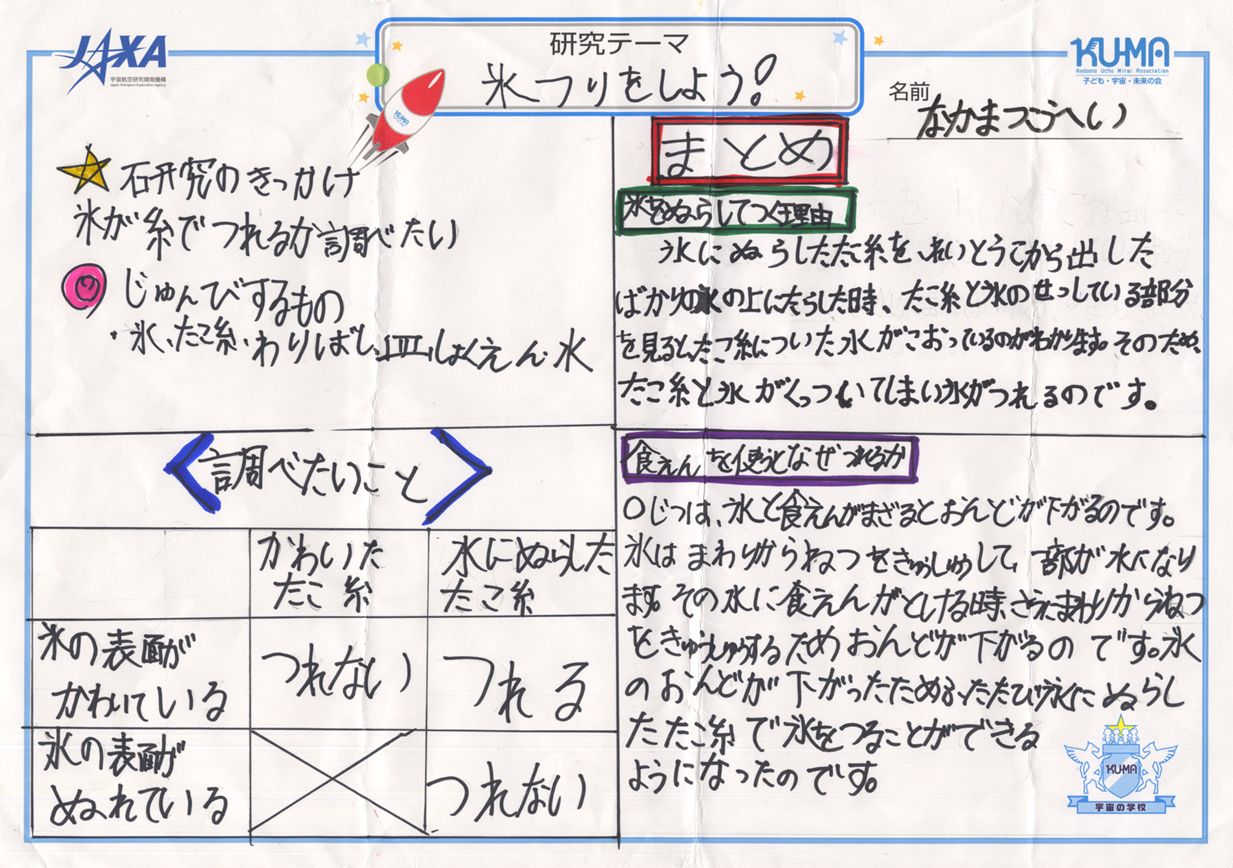 JAXA
宇宙航空研究開発機構
Japan Aerospace Exploration Agency
研究テーマ
氷つりをしよう!
KUMA
KUMA
Kodomo Uchu Mirai Association
子ども・宇宙・未来の会
名前
なかまつこうへい
研究のきっかけ
氷が糸でつれるか調べたい
じゅんびするもの
・氷、たこ糸、わりばし、皿、しょくえん、水
調べたいこと
かわいた
たこ糸
水にぬらした
たこ糸
氷の表面が
かわいている
つれない
つれる
氷の表面が
ぬれている
つれない
まとめ
氷をぬらしてつく理由
水にぬらしたたこ糸を、れいとうこから出した
ばかりの氷の上にたらした時、たこ糸と氷のせっしている部分
を見るとたこ糸についた水がこおっているのがわかります。そのため、
たこ糸と氷がくっついてしまい氷がつれるのです。
食えんを使うとなぜつれるか
○じつは、氷と食えんがまざるとおんどが下がるのです。
氷はまわりからねつをきゅうしゅうして、一部が水になり
ます。その水に食えんがとける時、さらにまわりからねつ
をきゅうしゅうするためおんどが下がるのです。氷
のおんどが下がったためふたたび水にぬらし
たたこ糸で氷をつることができる
ようになったのです。
KUMA
宇宙の学校